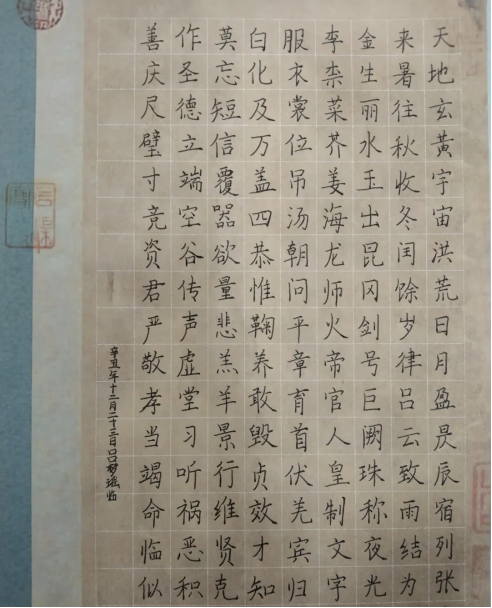 天地玄黃宇宙洪荒日月盈昃辰宿列张
来暑往秋收冬闰馀岁律吕云致雨结为
金生丽水玉出昆冈剑号巨阙珠称夜光
李柰菜芥姜海龙师火帝官人皇制文字
服衣裳位吊汤朝问平章育首伏羌宾归
白化及万盖四恭惟鞠养敢毁贞效才知
莫忘短信覆噐欲量悲羔羊景行维贤克
作圣德立端空谷传声虚堂习听祸恶积
善庆尺璧寸竞资君严敬孝当竭命临似
辛丑年十二月二十三日吕梦瑶临